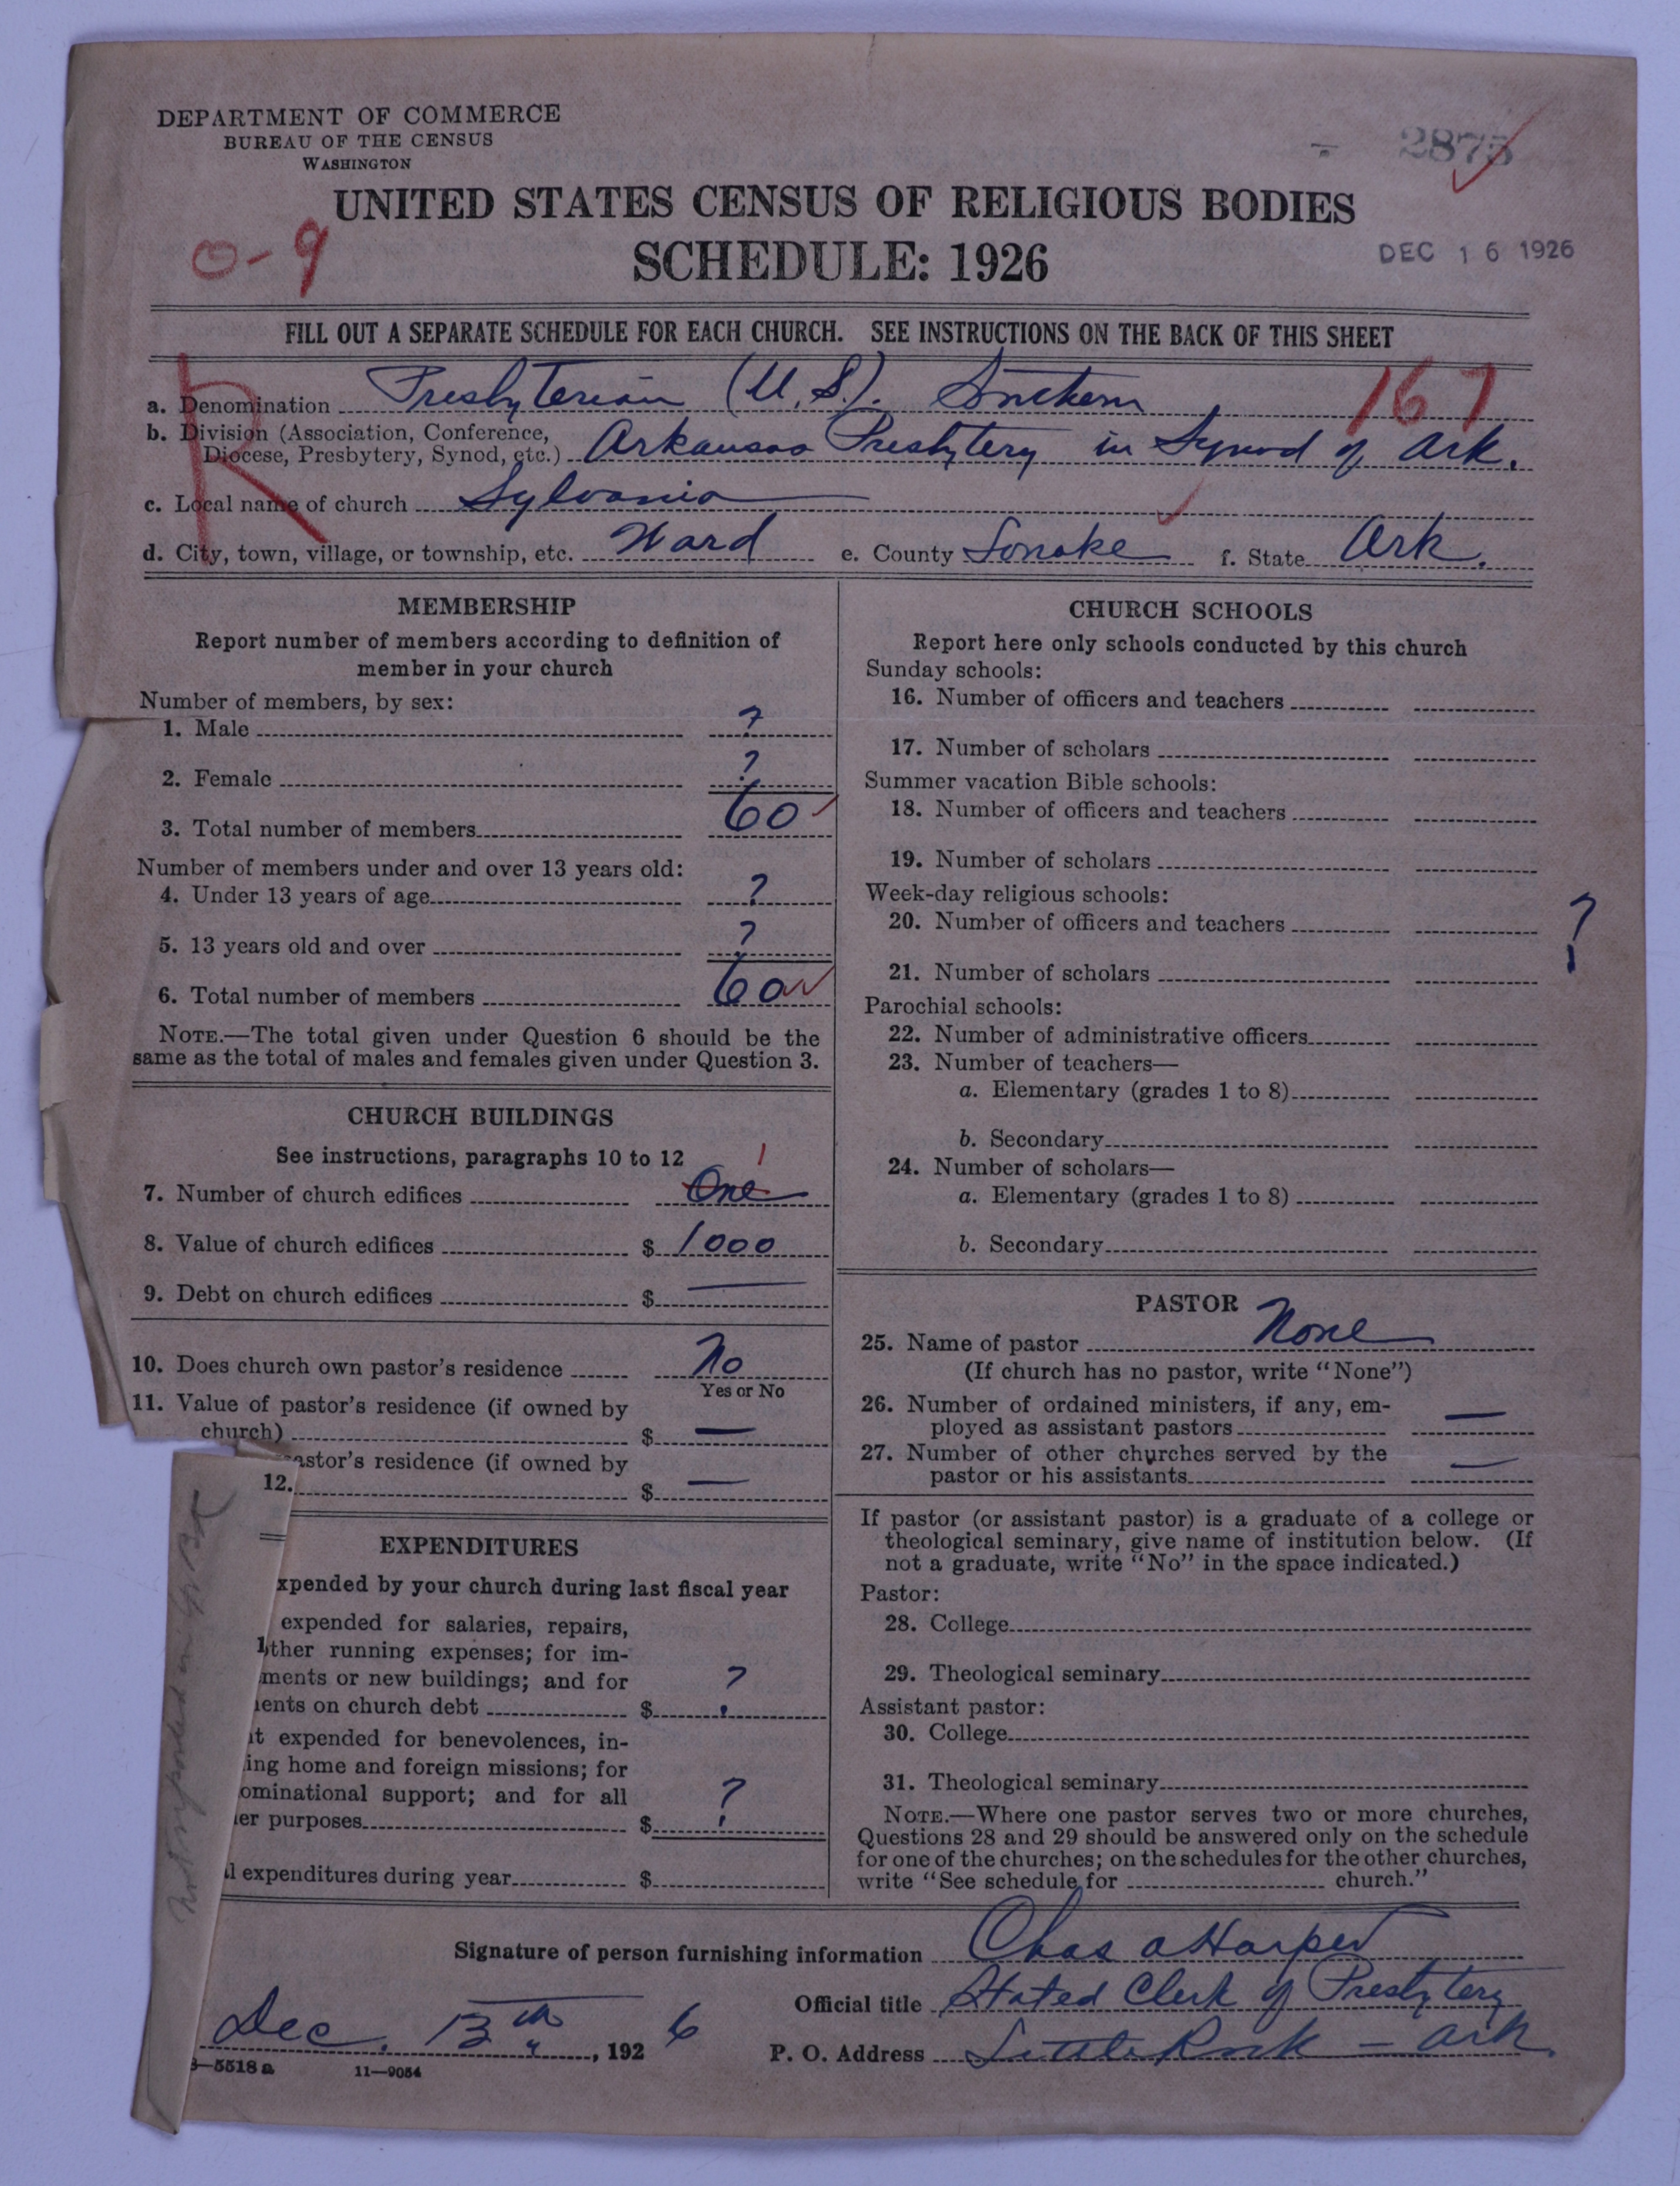 DEPARTMENT OF COMMERCE
BUREAU OF THE CENSUS
WASHINGTON
2875
UNITED STATES CENSUS OF RELIGIOUS BODIES
SCHEDULE: 1926
0-9
DEC 16 1926
FILL OUT A SEPARATE SCHEDULE FOR EACH CHURCH. SEE INSTRUCTIONS ON THE BACK OF THIS SHEET
R
167
a. Denomination Presbyterian (U.S.). Southern
b. Division (Association, Conference, Diocese, Presbytery, Synod, etc.) Arkansas Presbytery in Synod of Ark.
c. Local name of church Sylvania
d. City, town, village, or township, etc. Ward e. County Lonoke f. State Ark.
MEMBERSHIP
Report number of members according to definition of
member in your church
Number of members, by sex:
1. Male ?
2. Female ?
3. Total number of members 60
Number of members under and over 13 years old:
4. Under 13 years of age ?
5. 13 years old and over ?
6. Total number of members 60
NOTE.—The total given under Question 6 should be the
same as the total of males and females given under Question 3.
CHURCH BUILDINGS
See instructions, paragraphs 10 to 12
1
7. Number of church edifices One
8. Value of church edifices $ 1000
9. Debt on church edifices $ —
10. Does church own pastor's residence No
Yes or No
11. Value of pastor's residence (if owned by
church) $ —
astor's residence (if owned by
12. $ —
EXPENDITURES
xpended by your church during last fiscal year
expended for salaries, repairs,
ther running expenses; for im-
ments or new buildings; and for
ents on church debt $ ?
t expended for benevolences, in-
ing home and foreign missions; for
ominational support; and for all
er purposes $ ?
l expenditures during year $
CHURCH SCHOOLS
Report here only schools conducted by this church
Sunday schools:
16. Number of officers and teachers
17. Number of scholars
Summer vacation Bible schools:
18. Number of officers and teachers
19. Number of scholars
Week-day religious schools:
20. Number of officers and teachers
?
21. Number of scholars
Parochial schools:
22. Number of administrative officers
23. Number of teachers—
a. Elementary (grades 1 to 8)
b. Secondary
24. Number of scholars—
a. Elementary (grades 1 to 8)
b. Secondary
PASTOR
25. Name of pastor None
(If church has no pastor, write "None")
26. Number of ordained ministers, if any, em-
ployed as assistant pastors —
27. Number of other churches served by the
pastor or his assistants —
If pastor (or assistant pastor) is a graduate of a college or
theological seminary, give name of institution below. (If
not a graduate, write "No" in the space indicated.)
Pastor:
28. College
29. Theological seminary
Assistant pastor:
30. College
31. Theological seminary
NOTE.—Where one pastor serves two or more churches,
Questions 28 and 29 should be answered only on the schedule
for one of the churches; on the schedules for the other churches,
write "See schedule for church."
Signature of person furnishing information Chas A Harper
Official title Stated Clerk of Presbytery
Dec. 13th, 1926
P. O. Address Little Rock — Ark.
8—5518 a 11—9054